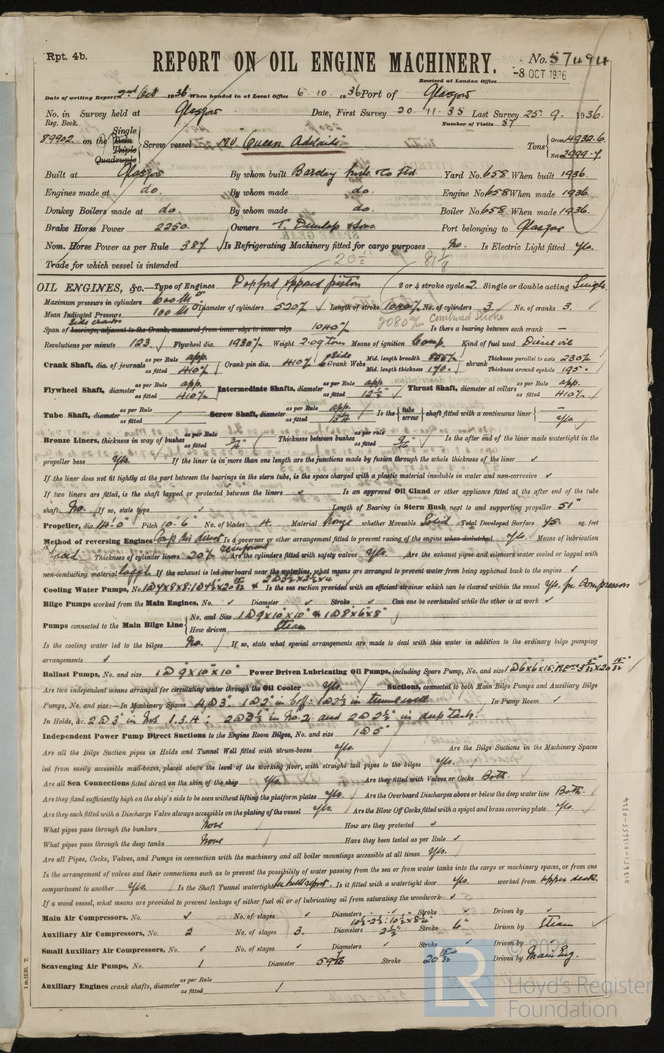 Rpt. 4b.
REPORT ON OIL ENGINE MACHINERY.
No. 57494
Received at London Office
-8 OCT 1936
Date of writing Report 2nd Oct 1936 When handed in at Local Office 6.10.1936 Port of Glasgow
No. in Survey held at Glasgow Date, First Survey 20.11.35 Last Survey 25.9.1936.
Reg. Book. Number of Visits 57
89902 on the Single Twin Triple Quadruple Screw vessel MV Queen Adelaide Tons Gross 4932.6 Net 2999.7
Built at Glasgow By whom built Barclay Curle & Co Ltd. Yard No. 658 When built 1936
Engines made at do. By whom made do. Engine No. 658 When made 1936
Donkey Boilers made at do. By whom made do. Boiler No. 658 When made 1936.
Brake Horse Power 2250. Owners T. Dunlop & Sons Port belonging to Glasgow
Nom. Horse Power as per Rule 387 Is Refrigerating Machinery fitted for cargo purposes No. Is Electric Light fitted Yes.
Trade for which vessel is intended
OIL ENGINES, &c.—Type of Engines Doxford opposed piston 2 or 4 stroke cycle 2. Single or double acting Single
Maximum pressure in cylinders 600 lbs Diameter of cylinders 520 Length of stroke No. of cylinders 3. No. of cranks 3.
Mean Indicated Pressure 100 lbs Combined Stroke
Span of bearings, adjacent to the Crank, measured from inner edge to inner edge 1040 Is there a bearing between each crank
Revolutions per minute 123 Flywheel dia. 1930 Weight 2.09 tons Means of ignition Comp. Kind of fuel used Diesel oil
Crank Shaft, dia. of journals as per Rule app. as fitted 410 Crank pin dia. 410 Crank Webs Mid. length breadth Mid. length thickness shrunk Thickness parallel to axis 230 Thickness around eyehole 195
Flywheel Shafts, diameter as per Rule app. as fitted 410 Intermediate Shafts, diameter as per Rule app. as fitted 12½ Thrust Shaft, diameter at collars as per Rule app. as fitted 410
Tube Shaft, diameter as per Rule as fitted Screw Shaft, diameter as per Rule app. as fitted Is the tube screw shaft fitted with a continuous liner Yes
Bronze Liners, thickness in way of bushes as per Rule as fitted Thickness between bushes as per Rule as fitted Is the after end of the liner made watertight in the
propeller boss Yes. If the liner is in more than one length are the junctions made by fusion through the whole thickness of the liner
If the liner does not fit tightly at the part between the bearings in the stern tube, is the space charged with a plastic material insoluble in water and non-corrosive
If two liners are fitted, is the shaft lapped or protected between the liners Is an approved Oil Gland or other appliance fitted at the after end of the tube
shaft No. If so, state type Length of Bearing in Stern Bush next to and supporting propeller 51"
Propeller, dia. 14'-0" Pitch 10'-6" No. of blades 4. Material Bronze whether Moveable Solid Total Developed Surface 45. sq. feet
Method of reversing Engines Comp Air direct Is a governor or other arrangement fitted to prevent racing of the engine when declutched Yes. Means of lubrication
forced. Thickness of cylinder liners Are the cylinders fitted with safety valves Yes. Are the exhaust pipes and silencers water cooled or lagged with
non-conducting material lagged If the exhaust is led overboard near the waterline, what means are arranged to prevent water from being syphoned back to the engine
Cooling Water Pumps, No. Is the sea suction provided with an efficient strainer which can be cleared within the vessel Yes.
Bilge Pumps worked from the Main Engines, No. Diameter Stroke Can one be overhauled while the other is at work
Pumps connected to the Main Bilge Line No. and Size 1@9"x10"x10" & 1@8"x6"x8" How driven Steam
Is the cooling water led to the bilges No. If so, state what special arrangements are made to deal with this water in addition to the ordinary bilge pumping
arrangements
Ballast Pumps, No. and size 1@9"x10"x10" Power Driven Lubricating Oil Pumps, including Spare Pump, No. and size
Are two independent means arranged for circulating water through the Oil Cooler Yes. Suctions, connected to both Main Bilge Pumps and Auxiliary Bilge
Pumps, No. and size:—In Machinery Spaces 4@3". In Pump Room
In Holds, &c. 2@3" in Nos 1.3.4: 2@3½" in No.2 and 2@2½" in deep tank.
Independent Power Pump Direct Suctions to the Engine Room Bilges, No. and size 1@5"
Are all the Bilge Suction pipes in Holds and Tunnel Well fitted with strum-boxes Yes. Are the Bilge Suctions in the Machinery Spaces
led from easily accessible mud-boxes, placed above the level of the working floor, with straight tail pipes to the bilges Yes.
Are all Sea Connections fitted direct on the skin of the ship Yes. Are they fitted with Valves or Cocks Both.
Are they fixed sufficiently high on the ship's side to be seen without lifting the platform plates Yes. Are the Overboard Discharges above or below the deep water line Both
Are they each fitted with a Discharge Valve always accessible on the plating of the vessel Yes. Are the Blow Off Cocks fitted with a spigot and brass covering plate Yes.
What pipes pass through the bunkers None How are they protected
What pipes pass through the deep tanks None Have they been tested as per Rule
Are all Pipes, Cocks, Valves, and Pumps in connection with the machinery and all boiler mountings accessible at all times Yes.
Is the arrangement of valves and their connections such as to prevent the possibility of water passing from the sea or from water tanks into the cargo or machinery spaces, or from one
compartment to another Yes. Is the Shaft Tunnel watertight Is it fitted with a watertight door Yes. worked from upper deck
If a wood vessel, what means are provided to prevent leakage of either fuel oil or lubricating oil from saturating the woodwork
Main Air Compressors, No. No. of stages Diameters Stroke Driven by
Auxiliary Air Compressors, No. 2 No. of stages 3. Diameters Stroke 6" Driven by Steam
Small Auxiliary Air Compressors, No. No. of stages Diameters Stroke Driven by
Scavenging Air Pumps, No. 1 Diameter Stroke Driven by Main Eng.
Auxiliary Engines crank shafts, diameter as per Rule as fitted
Lloyd's Register
Foundation